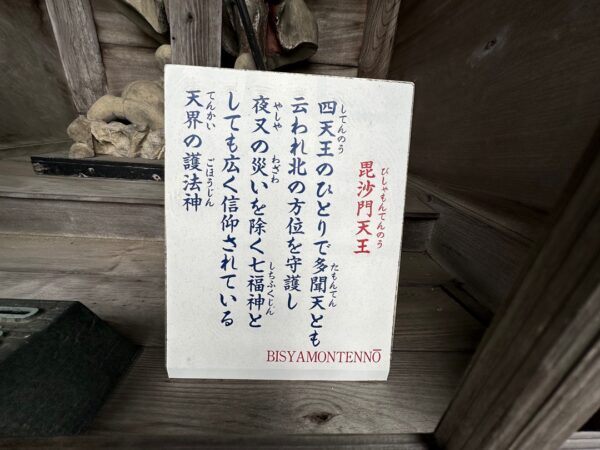 毘沙門天王
びしゃもんてんのう
四天王のひとりで多聞天とも
してんのう
たもんてん
云われ北の方位を守護し
夜叉の災いを除く七福神と
やしゃ
わざわ
しちふくじん
しても広く信仰されている
天界の護法神
てんかい
ごほうじん
BISYAMONTENNŌ